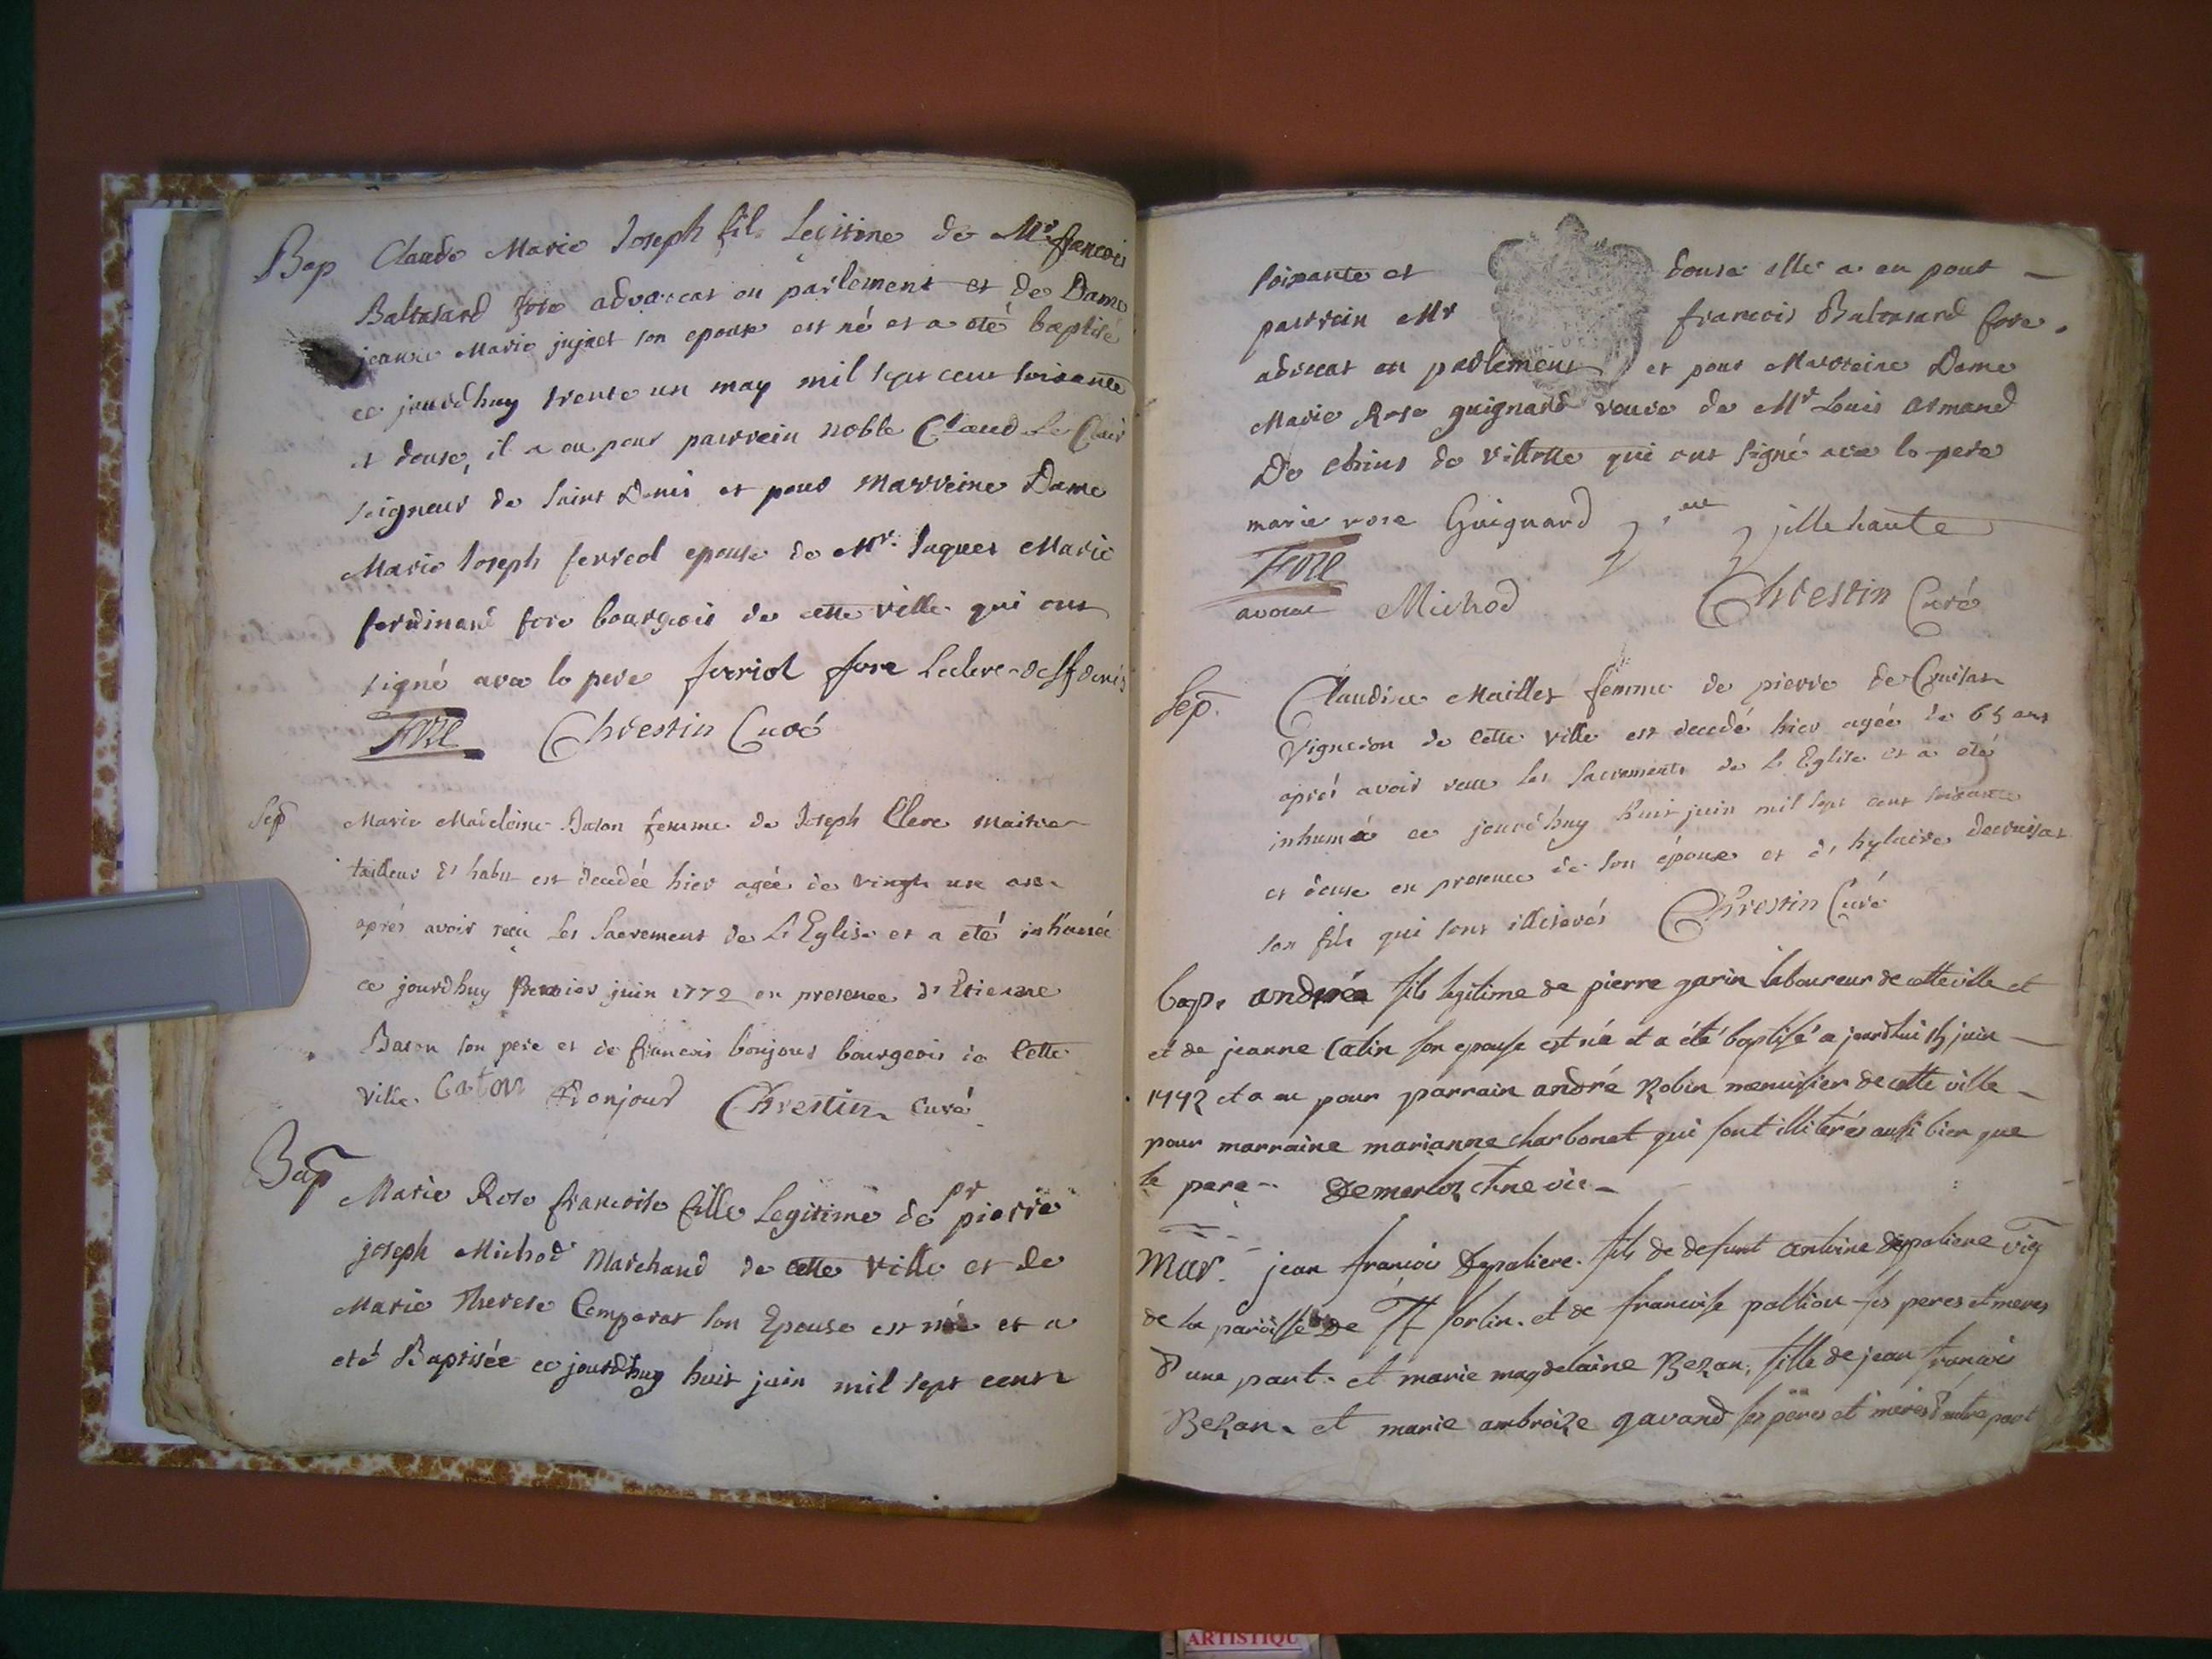 Bap Claude Marie Joseph fils Legitime de Mr francois
Baltasard fore advoccat en parlement et de Dame
jeanne Marie jujnet son epouse est né et a oté baptisé
ce jourdhuy trente un may mil sept cent soixante
et douse, il a eu pour parrein noble Claud Le Clair
seigneur de saint Denis et pour Marreine Dame
Marie Joseph ferreol epouse de Mr. Jaques Marie
ferdinand fore bourgeois de cette ville qui ont
signé avec le pere ferriol fore Leclerc de St denis
Fore Chrestin Curé
Sep Marie Madeleine Baton femme de Joseph Clerc maitre
tailleur d'habit est decedée hier agée de vingt un ans
aprés avoir reçu Les Sacrement de L'Eglise et a eté inhumée
ce jourdhuy premier juin 1772 en presence d'Etienne
Baton son pere et de francois bonjour bourgeois de Cette
ville. Baton Bonjour Chrestin Curé
Bap Marie Rose francoise fille Legitime de pr pierre
joseph Michod Marchand de cette ville et de
Marie Therese Comparet son Epouse est née et a
eté Baptisée ce jourdhuy huit juin mil sept cent
soixante et douse elle a eu pour
parrein Mr francois Baltasard fore
advocat en parlement et pour Marreine Dame
Marie Rose guignard veuve de Mr Louis armand
De de villette qui ont signé avec le pere
marie rose Guignard ve jille haute
Fore
avocat Michod Chrestin Curé
Sep. Claudine Maillet femme de pierre de Cruisat
Vigneron de Cette ville est decedé hier agée de 65 ans
aprés avoir recue les Sacrements de L'Eglise et a eté
inhumé ce jourdhuy huit juin mil sept cent soixante
et douse en presence de son épouse et d'hylaire decruisat
son fils qui sont illiterés Chrestin Curé
bap. andré fils legitime de pierre garin laboureur de cette ville et
et de jeanne Catin son epouse est né et a été baptisé a jourdhui 15 juin
1772 et a eu pour parrain andré Robin menuisier de cette ville
pour marraine marianne charbonet qui sont illiterés aussi bien que
le pere - Demerloz chne vic -
Mar. jean francois Depaliere. fils de defunt antoine depaliere vig
de la paroisse de St sorlin. et de francoise pallion ses peres et meres
d'une part. et marie magdelaine Bezan. fille de jean francois
Bezan. et marie ambroize gavand ses peres et meres d'autre part
ARTISTIQU